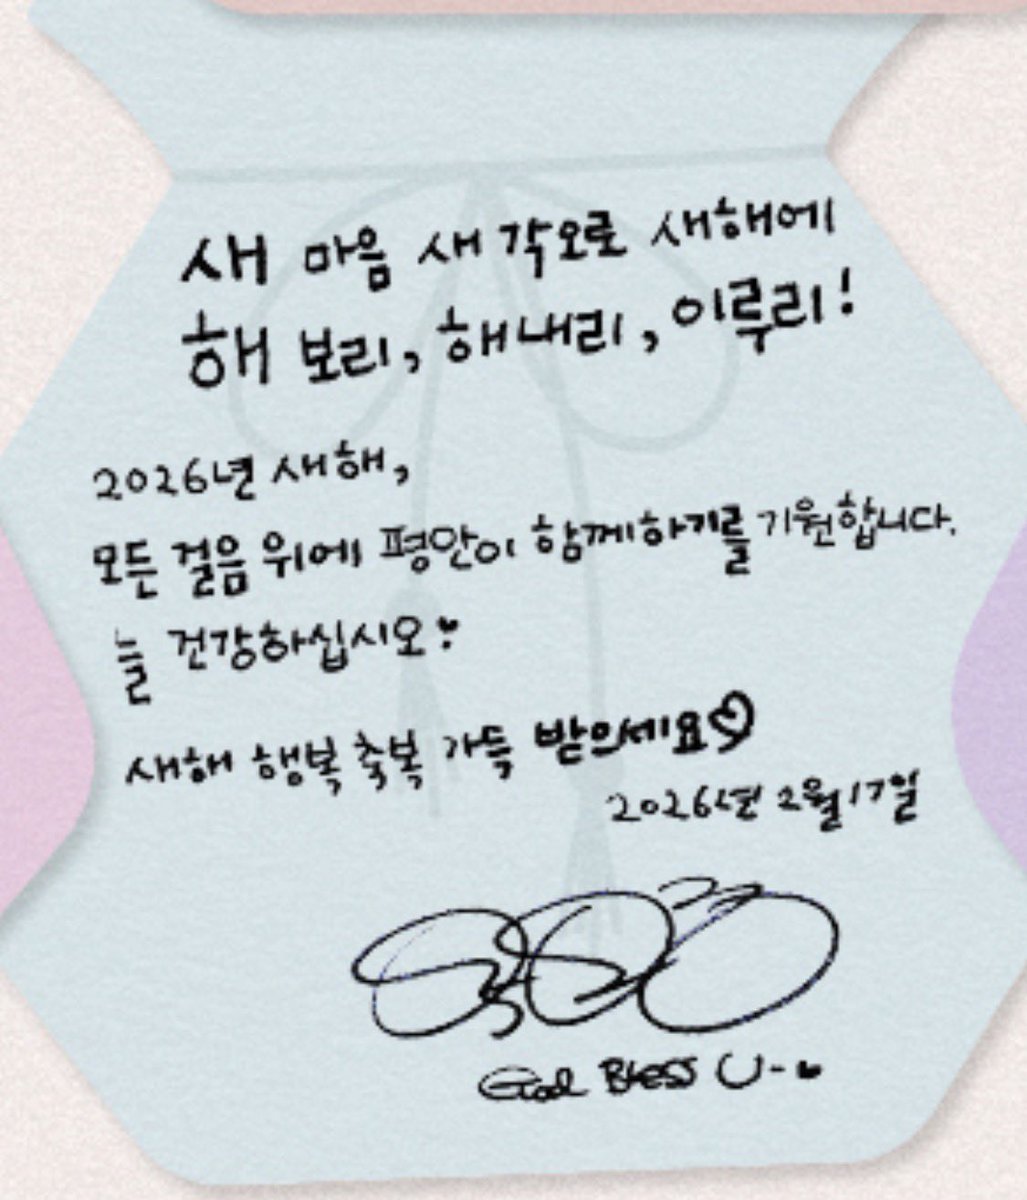 새 마음 새 각오로 새해에
해 보리, 해내리, 이루리!
2026년 새해,
모든 걸음 위에 평안이 함께하기를 기원합니다.
늘 건강하십시오♥
새해 행복 축복 가득 받으세요♡
2026년 2월 17일
God Bless U-♥